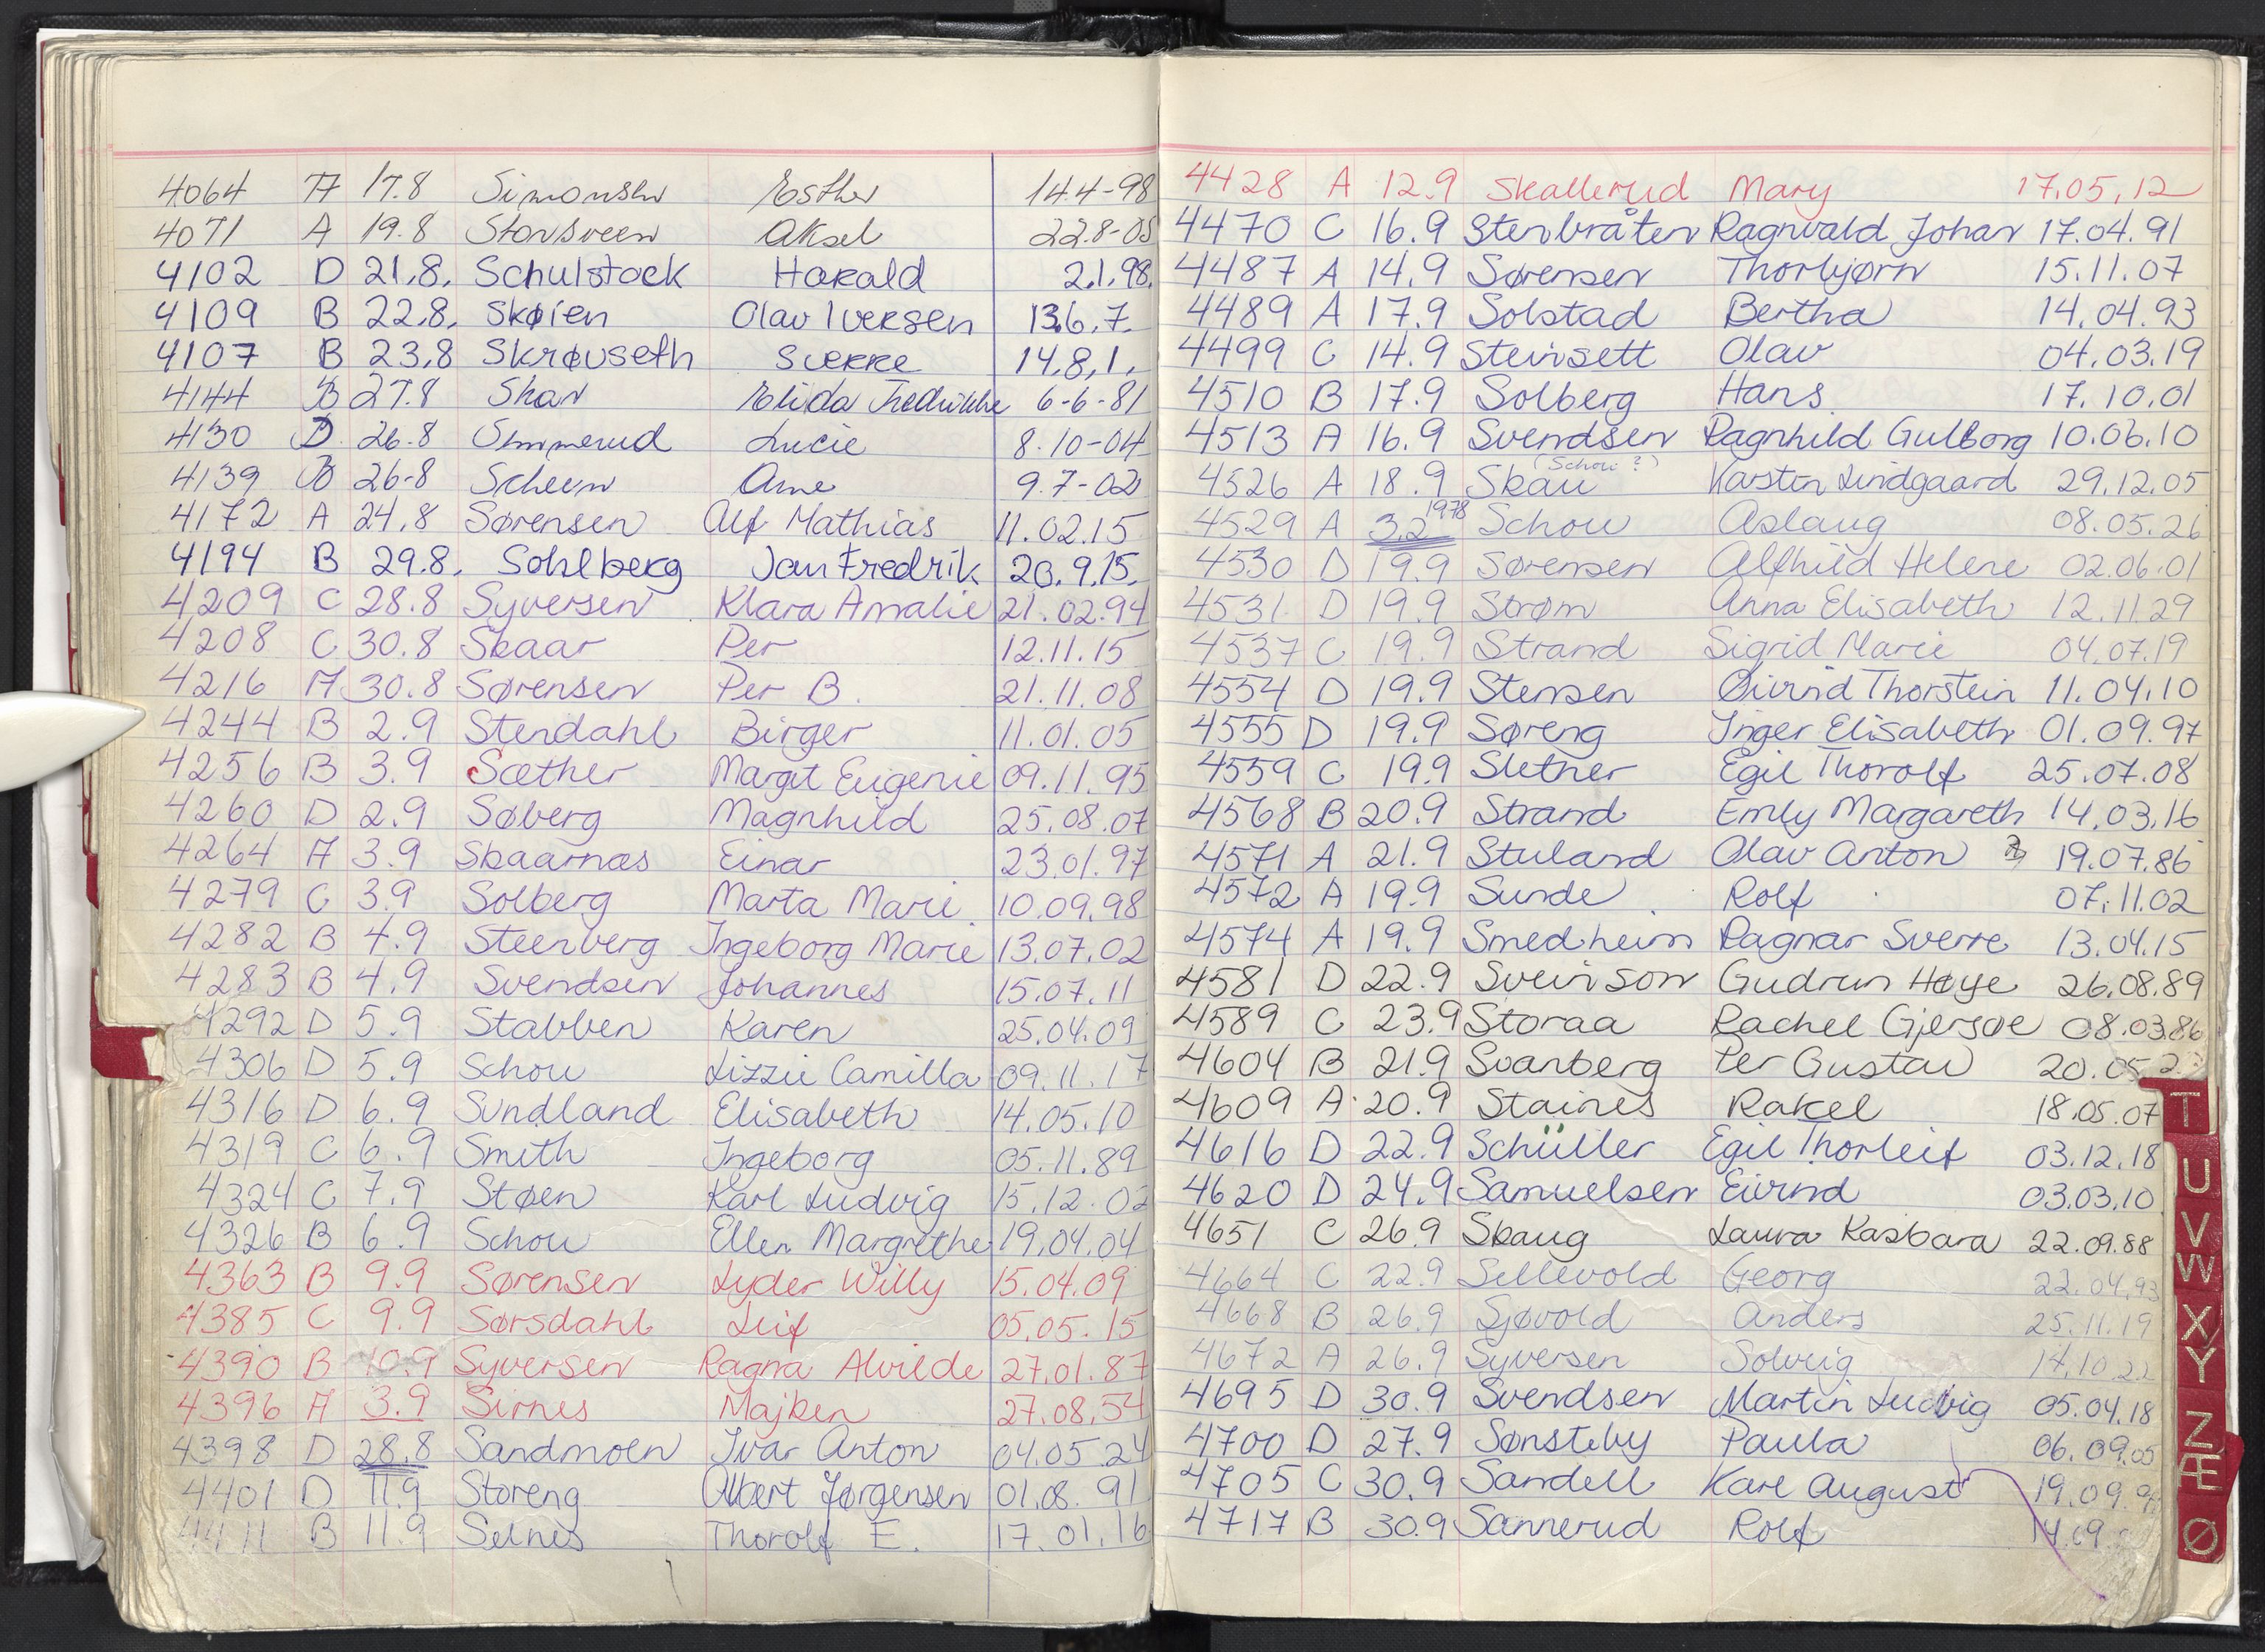 4064 A 17.8 Simonsen Esther 14.4-98
4071 A 19.8 Storsveen Aksel 22.8-05
4102 D 21.8. Schulstock Harald 2.1.98.
4109 B 22.8. Skøien Olav Iversen 13.6.7.
4107 B 23.8 Skrøvseth Sverre 14.8.1.
4144 B 27.8 Skar Elida Fredrikke 6-6-81
4130 D. 26.8 Simmerud Lucie 8.10-04
4139 B 26-8 Scheen Arne 9.7-02
4172 A 24.8 Sørensen Alf Mathias 11.02.15
4194 B 29.8. Sohlberg Jan Fredrik 20.9.15.
4209 C 28.8 Syversen Klara Amalie 21.02.94
4208 C 30.8 Skaar Per 12.11.15
4216 A 30.8 Sørensen Per B. 21.11.08
4244 B 2.9 Stendahl Birger 11.01.05
4256 B 3.9 Sæther Margit Eugenie 09.11.95
4260 D 2.9 Søberg Magnhild 25.08.07
4264 A 3.9 Skaarnæs Einar 23.01.97
4279 C 3.9 Solberg Marta Marie 10.09.98
4282 B 4.9 Steenberg Ingeborg Marie 13.07.02
4283 B 4.9 Svendsen Johannes 15.07.11
4292 D 5.9 Stabben Karen 25.04.09
4306 D 5.9 Schou Lizzie Camilla 09.11.17
4316 D 6.9 Sundland Elisabeth 14.05.10
4319 C 6.9 Smith Ingeborg 05.11.89
4324 C 7.9 Støen Karl Ludvig 15.12.02
4326 B 6.9 Schou Ellen Margrethe 19.04.04
4363 B 9.9 Sørensen Lyder Willy 15.04.09
4385 C 9.9 Sørsdahl Leif 05.05.15
4390 B 10.9 Syversen Ragna Alvilde 27.01.87
4396 A 3.9 Sirnes Majken 27.08.54
4398 D 28.8 Sandmoen Ivar Anton 04.05.24
4401 D 11.9 Storeng Albert Jørgensen 01.08.91
4411 B 11.9 Selnes Thorolf E. 17.01.16
4428 A 12.9 Skallerud Mary 17.05.12
4470 C 16.9 Stenbråten Ragnvald Johan 17.04.91
4487 A 14.9 Sørensen Thorbjørn 15.11.07
4489 A 17.9 Solstad Bertha 14.04.93
4499 C 14.9 Steinsett Olav 04.03.19
4510 B 17.9 Solberg Hans 17.10.01
4513 A 16.9 Svendsen Ragnhild Gulborg 10.06.10
(Schou ?)
4526 A 18.9 Skau Karsten Lindgaard 29.12.05
4529 A 3.2 1978 Schou Aslaug 08.05.26
4530 D 19.9 Sørensen Alfhild Helene 02.06.01
4531 D 19.9 Strøm Anna Elisabeth 12.11.29
4537 C 19.9 Strand Sigrid Marie 04.07.19
4554 D 19.9 Stensen Øivind Thorstein 11.04.10
4555 D 19.9 Søreng Inger Elisabeth 01.09.97
4559 C 19.9 Sletner Egil Thorolf 25.07.08
4568 B 20.9 Strand Emly Margareth 14.03.16
4571 A 21.9 Stuland Olav Anton 19.07.86
4572 A 19.9 Sunde Rolf 07.11.02
4574 A 19.9 Smedheim Ragnar Sverre 13.04.15
4581 D 22.9 Sveinson Gudrun Høye 26.08.89
4589 C 23.9 Storaa Rachel Gjersøe 08.03.86
4604 B 21.9 Svanberg Per Gustav 20.05
4609 A 20.9 Staines Rakel 18.05.07
4616 D 22.9 Schüller Egil Thorleif 03.12.18
4620 D 24.9 Samuelsen Eivind 03.03.10
4651 C 26.9 Skaug Laura Kasbara 22.09.88
4664 C 22.9 Sellevold Georg 22.04.93
4668 B 26.9 Sjøvold Anders 25.11.19
4672 A 26.9 Syversen Solveig 14.10.22
4695 D 30.9 Svendsen Martin Ludvig 05.04.18
4700 D 27.9 Sønsteby Paula 06.09.05
4705 C 30.9 Sandell Karl August 19.09
4717 B 30.9 Sannerud Rolf 14.09
T
U
V
W
X
Y
Z
Æ
Ø